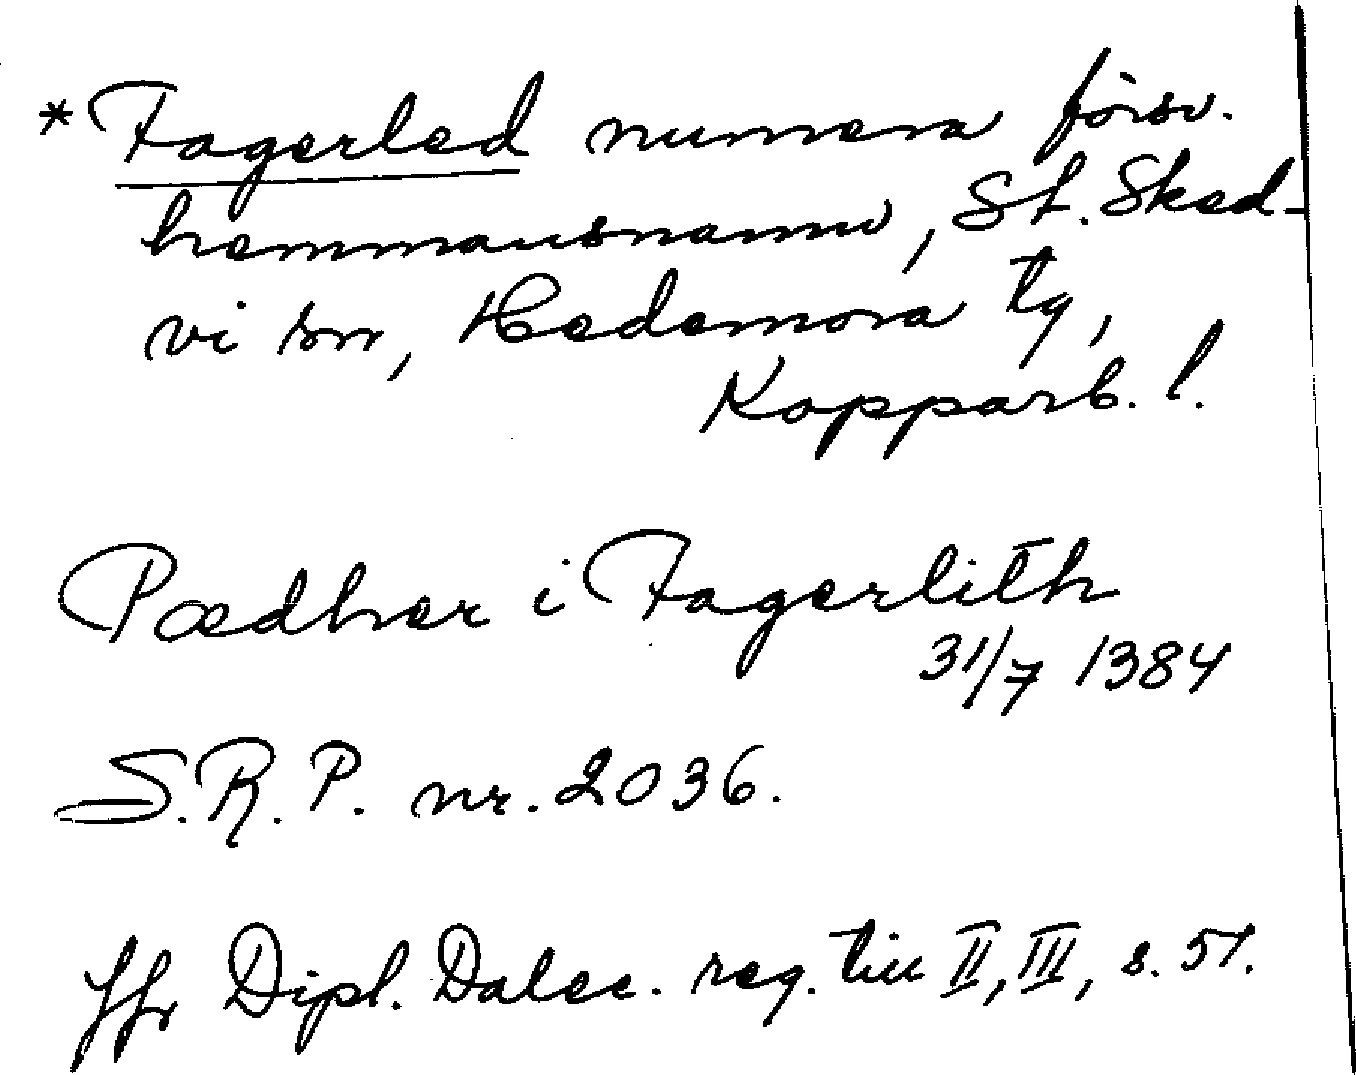 *Fagerled numera försv.
hemmansnamn, St. Sked-
vi sn, Hedemora tg,
Kopparb. l.
Pædher i Fagerlith
31/7 1384
S.R.P. nr. 2036.
Jfr Dipl. Dalec. reg. till II, III, s. 51.